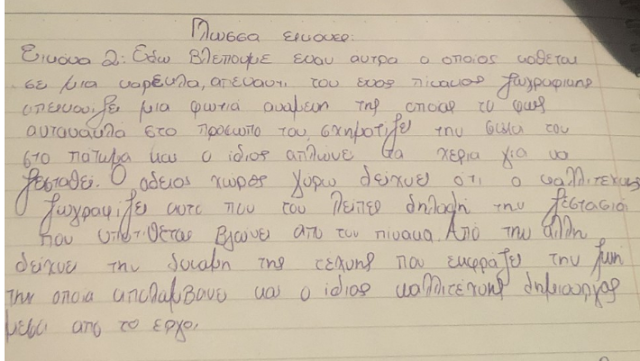 Γλωσσα εικονες:
Εικονα 2: Εδω βλεπουμε εναν αντρα ο οποιος καθεται
σε μια καρεκλα, απεναντι του ενας πινακας ζωγραφικης
απεικονιζει μια φωτια αναμενη της οποιας το φως
αντανακλα στο προσωπο του, σχηματιζει την σκια του
στο πατωμα και ο ιδιος απλωνει τα χερια για να
ζεσταθει. Ο αδειος χωρος γυρω δειχνει οτι ο καλλιτεχνης
ζωγραφιζει αυτο που του λειπει δηλαδη την ζεστασια
που υποτιθεται βγαινει απο τον πινακα. Απο την αλλη
δειχνει την δυναμη της τεχνης που εκφραζει την ζωη
την οποια απολαμβανει και ο ιδιος καλλιτεχνης δημιουργος
μεσα απο το εργο.